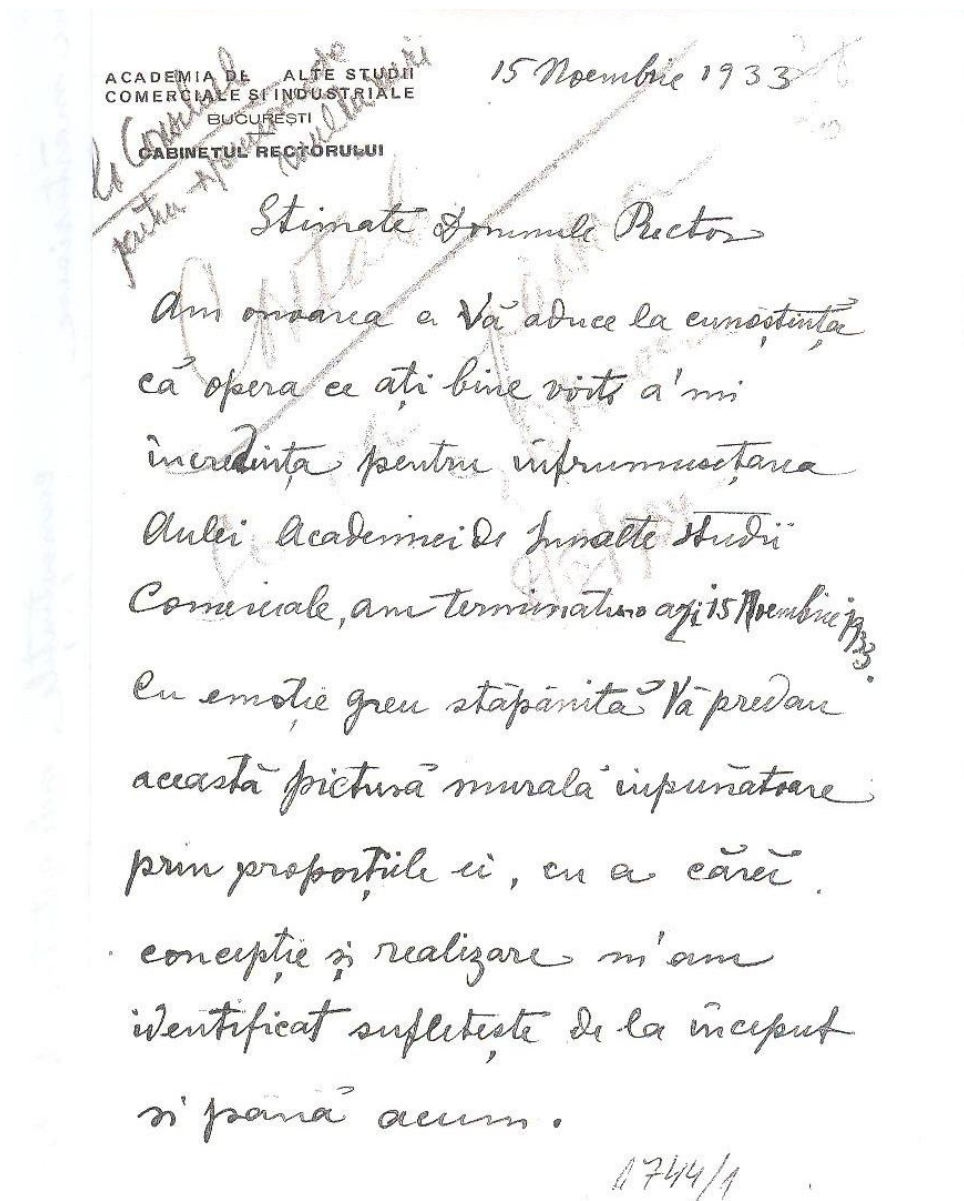 ACADEMIA DE ALTE STUDII
COMERCIALE SI INDUSTRIALE
BUCUREȘTI
CABINETUL RECTORULUI
15 Noembrie 1933
La Consiliul
pentru
Stimate Domnule Rector
Am onoarea a Vă aduce la cunoștință
că opera ce ați bine voit a'mi
încredința pentru înfrumusețarea
Aulei Academiei de Innalte Studii
Comerciale, am terminat-o azi 15 Noembrie 1933.
Cu emoție greu stăpânită Vă predau
această pictură murală inpunătoare
prin proporțiile ei, cu a cărei
concepție și realizare m'am
identificat sufletește de la început
si până acum.
1744/1